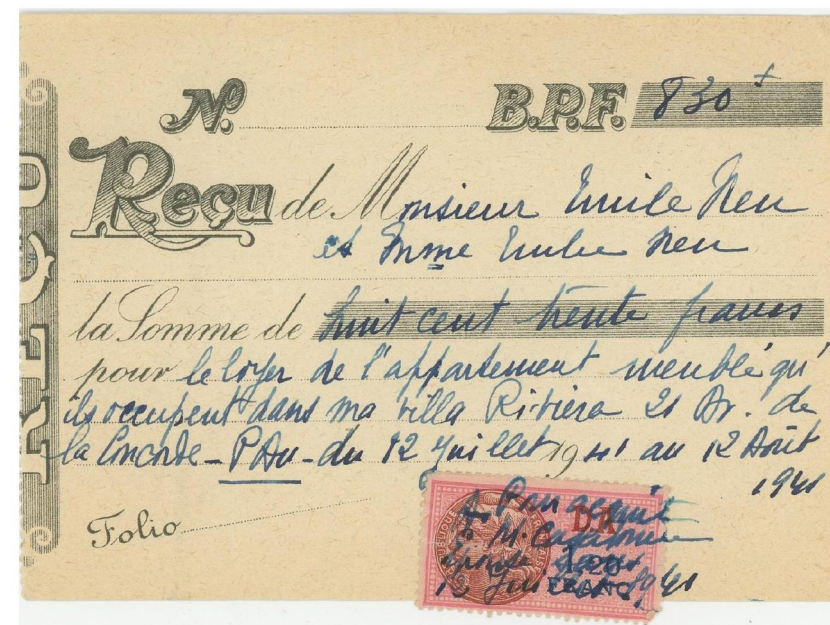 REÇU
N° B.P.F. 830
Reçu de Monsieur Emile Neu
et Mme Emilie Neu
la Somme de huit cent trente francs
pour le loyer de l'appartement meublé qu'
ils occupent dans ma villa Riviera 21 Av. de
la Concorde - PAU - du 12 Juillet 1941 au 12 Août
1941
Folio
Pau
D.R
M.
1.20
FRANC
12 Juillet 1941